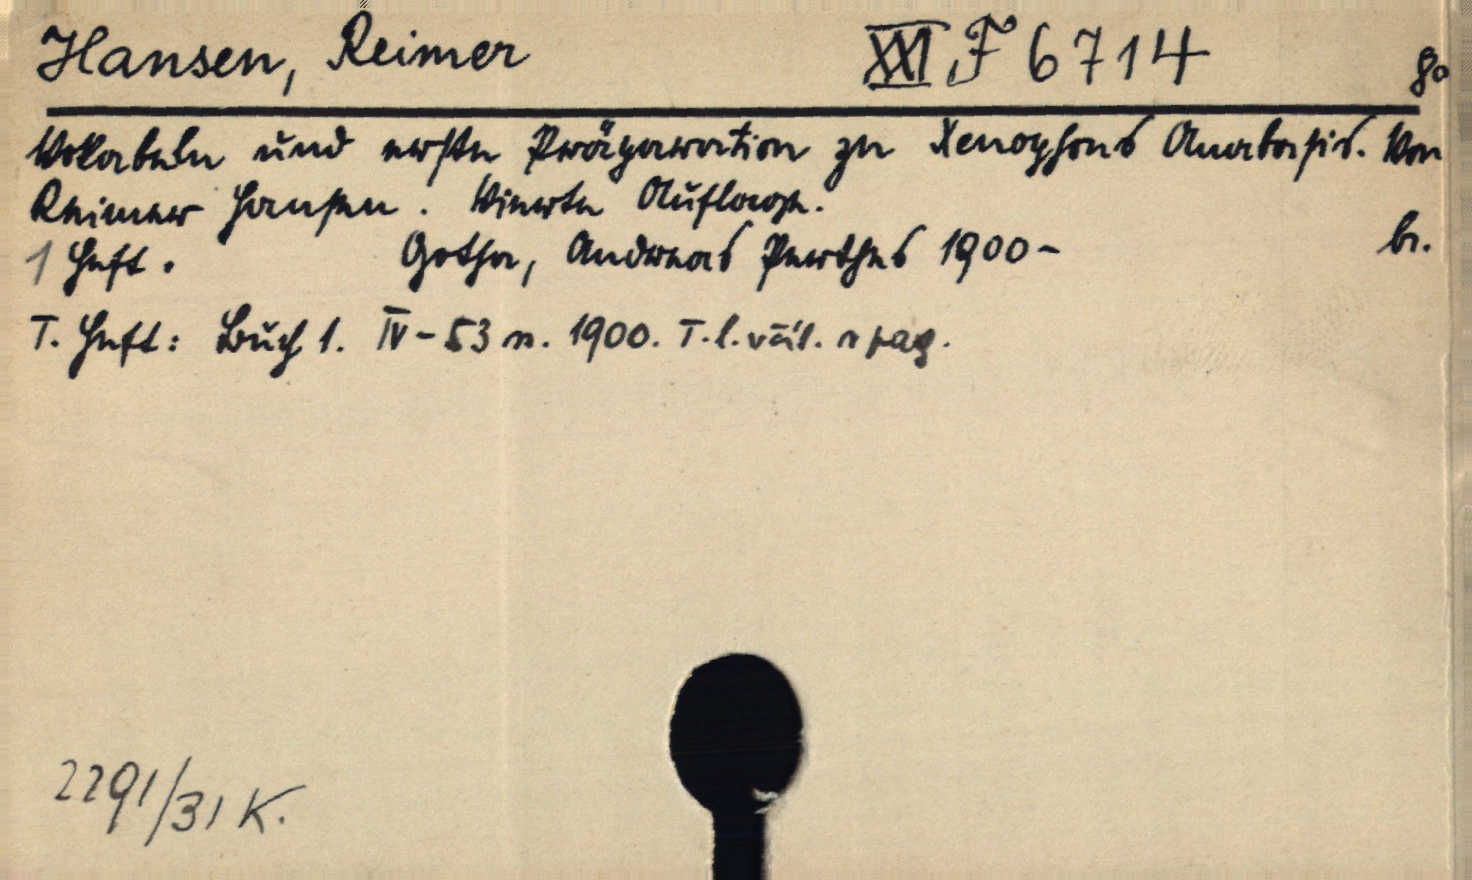 Hansen, Reimer XXI F 6714 8°
Vokabeln und erste Präparation zu Xenophons Anabasis. Von
Reimer Hansen. Vierte Auflage.
1 Heft. Gotha, Andreas Perthes 1900- br.
1. Heft: Buch 1. IV-53 n. 1900. T. l. väl. n pag.
2291/31 K.